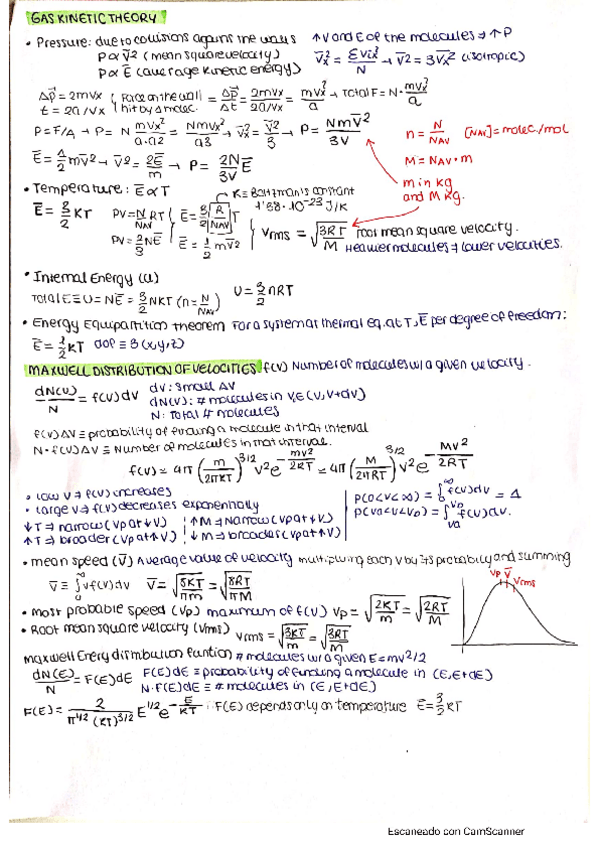 GAS KINETIC THEORY
• Pressure: due to collisions agains the walls ↑V and E of the molecules ⇒ ↑P
P∝V̄² (mean square velocity) V̄x² = ΣVix²/N → V̄² = 3V̄x² (isotropic)
P∝Ē (average kinetic energy)
Δp⃗ = 2mvx
t = 2a/vx
Force on the wall hit by 1 molec. = Δp⃗/Δt = 2mvx/2a/vx = mvx²/a → Total F = N·mvx²/a
P = F/A → P = N mvx²/a·a² = Nmvx²/a3 → V̄x² = V̄²/3 → P = NmV̄²/3V
n = N/NAV [NAV] = molec./mol
M = NAV·m
m in kg
and M kg.
Ē = 1/2 mV̄² → V̄² = 2Ē/m → P = 2N/3V Ē
• Temperature: Ē∝T
K ≡ Boltzman's constant
1'38·10⁻²³ J/K
Ē = 3/2 KT PV = N/NAV RT Ē = 3/2 R/NAV T
PV = 2/3 NĒ Ē = 1/2 mV̄²
Vrms = √3RT/M root mean square velocity.
Heavier molecules ⇒ lower velocities.
• Internal Energy (U)
Total E ≡ U = NĒ = 3/2 NKT (n = N/NAV) U = 3/2 nRT
• Energy Equipartition theorem For a system at thermal eq. at T, Ē per degree of freedom:
Ē = 1/2 KT dof ≡ 3 (x,y,z)
MAXWELL DISTRIBUTION OF VELOCITIES f(v) Number of molecules w/ a given velocity.
dN(v)/N = f(v) dv
dv: small Δv
dN(v): # molecules in v∈(v, v+dv)
N: Total # molecules
f(v)ΔV ≡ probability of finding a molecule in that interval
N·f(v)ΔV ≡ Number of molecules in that interval.
f(v) = 4π (m/2πKT)^3/2 v²e^-mv²/2RT = 4π (M/2πRT)^3/2 v²e^-MV²/2RT
• low v ⇒ f(v) increases
• large v ⇒ f(v) decreases exponentially
↓T ⇒ narrow (vp at ↓v) ↑M ⇒ Narrow (vp at ↓v)
↑T ⇒ broader (vp at ↑v) ↓M ⇒ broader (vp at ↑v)
P(0<v<∞) = ∫₀^∞ f(v)dv = 1
P(va<v<vb) = ∫va^vb f(v)dv.
• mean speed (v̄) Average value of velocity multiplying each v by its probability and summing
v̄ ≡ ∫₀^∞ vf(v)dv v̄ = √8KT/πm = √8RT/πM
• most probable speed (vp) maximum of f(v) vp = √2KT/m = √2RT/M
• Root mean square velocity (vrms) vrms = √3KT/m = √3RT/M
vp v̄ vrms
Maxwell Enery distribution funtion # molecules w/ a given E = mv²/2
dN(E)/N = F(E)dE
F(E)dE ≡ probability of finding a molecule in (E, E+dE)
N·F(E)dE ≡ # molecules in (E, E+dE)
F(E) = 2/π^1/2 (KT)^3/2 E^1/2 e^-E/KT F(E) depends only on temperature Ē = 3/2 KT
Escaneado con CamScanner